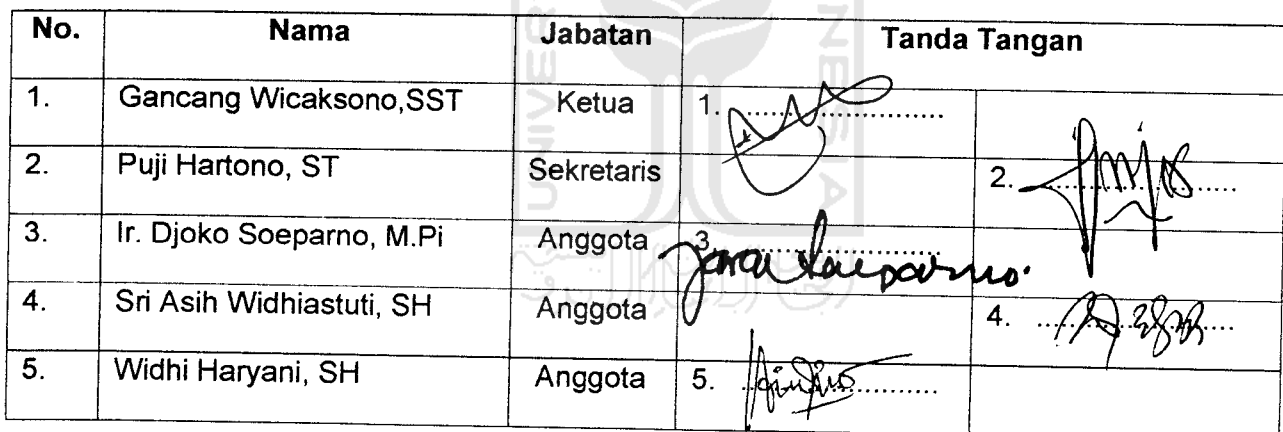 No. Nama Jabatan Tanda Tangan
1. Gancang Wicaksono,SST Ketua 1. ....................
2. Puji Hartono, ST Sekretaris 2. ....................
3. Ir. Djoko Soeparno, M.Pi Anggota 3. ....................
4. Sri Asih Widhiastuti, SH Anggota 4. ....................
5. Widhi Haryani, SH Anggota 5. ....................